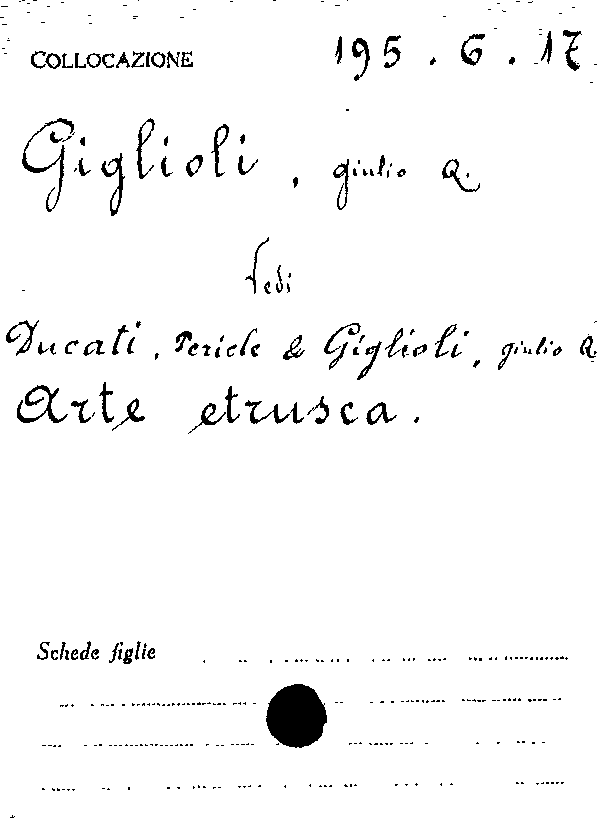 COLLOCAZIONE 195.6.17
Giglioli, Giulio Q.
Vedi
Ducati, Pericle & Giglioli, Giulio Q.
Arte etrusca.
Schede figlie